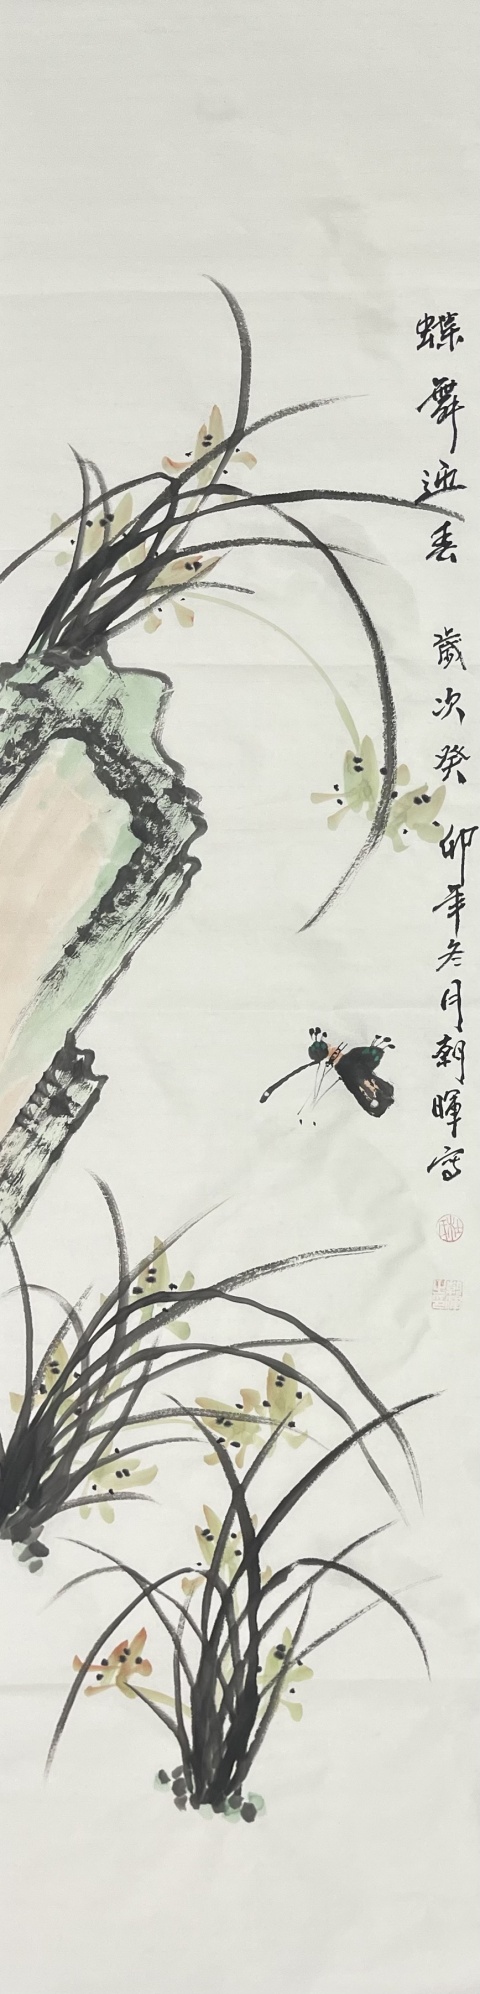 蝶舞迎春 歲次癸卯年冬月朝暉寫